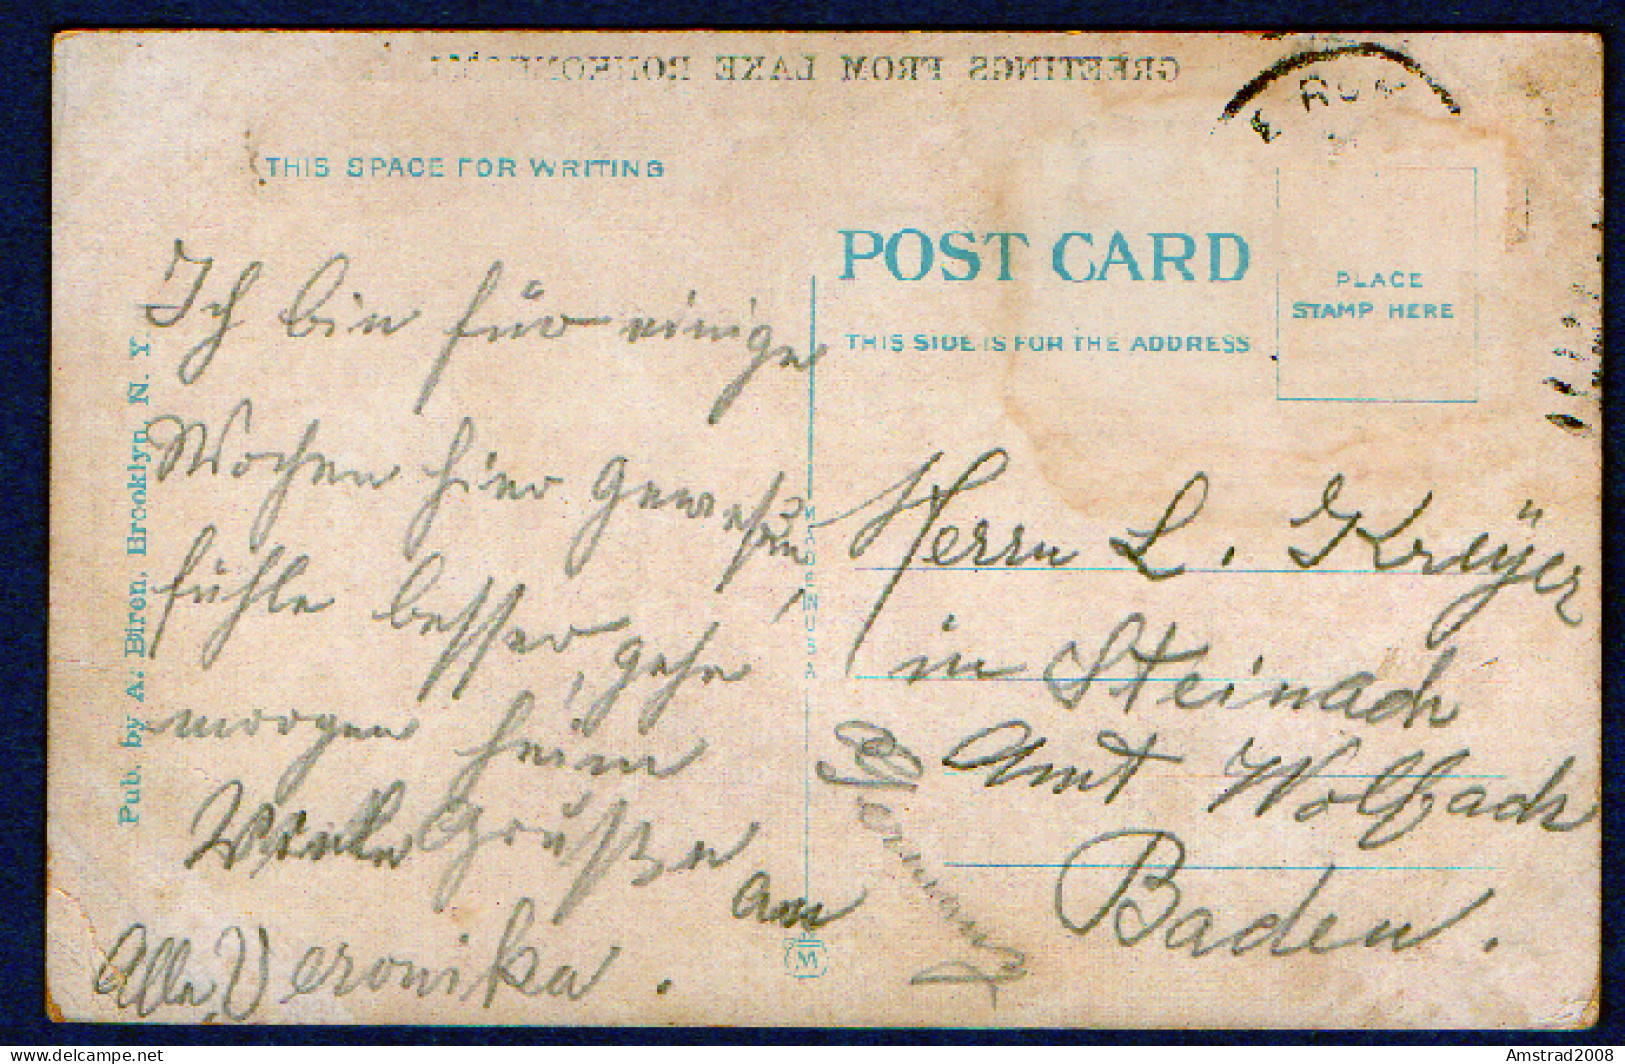 GREETINGS FROM LAKE RONKONKOMA
THIS SPACE FOR WRITING
Ich bin für einige
Wochen hier gewesen,
fühle besser, gehe
morgen heim
Viele Grüße an
Alle, Veronika.
Pub. by A. Biron, Brooklyn, N. Y.
POST CARD
THIS SIDE IS FOR THE ADDRESS
PLACE
STAMP HERE
MADE IN U.S.A
Herrn L. Kreÿer
in Steinach
Amt Wolfach
Baden.
Germany
M
Amstrad2008